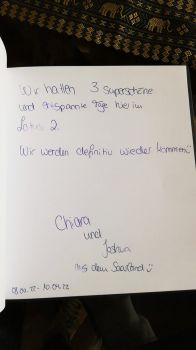 Wir hatten 3 superschöne
und entspannte Tage hier im
Lotus 2.
Wir werden definitiv wieder kommen
Chiara
und
Joshua
aus dem Saarland :)
08.04.22 - 10.04.22